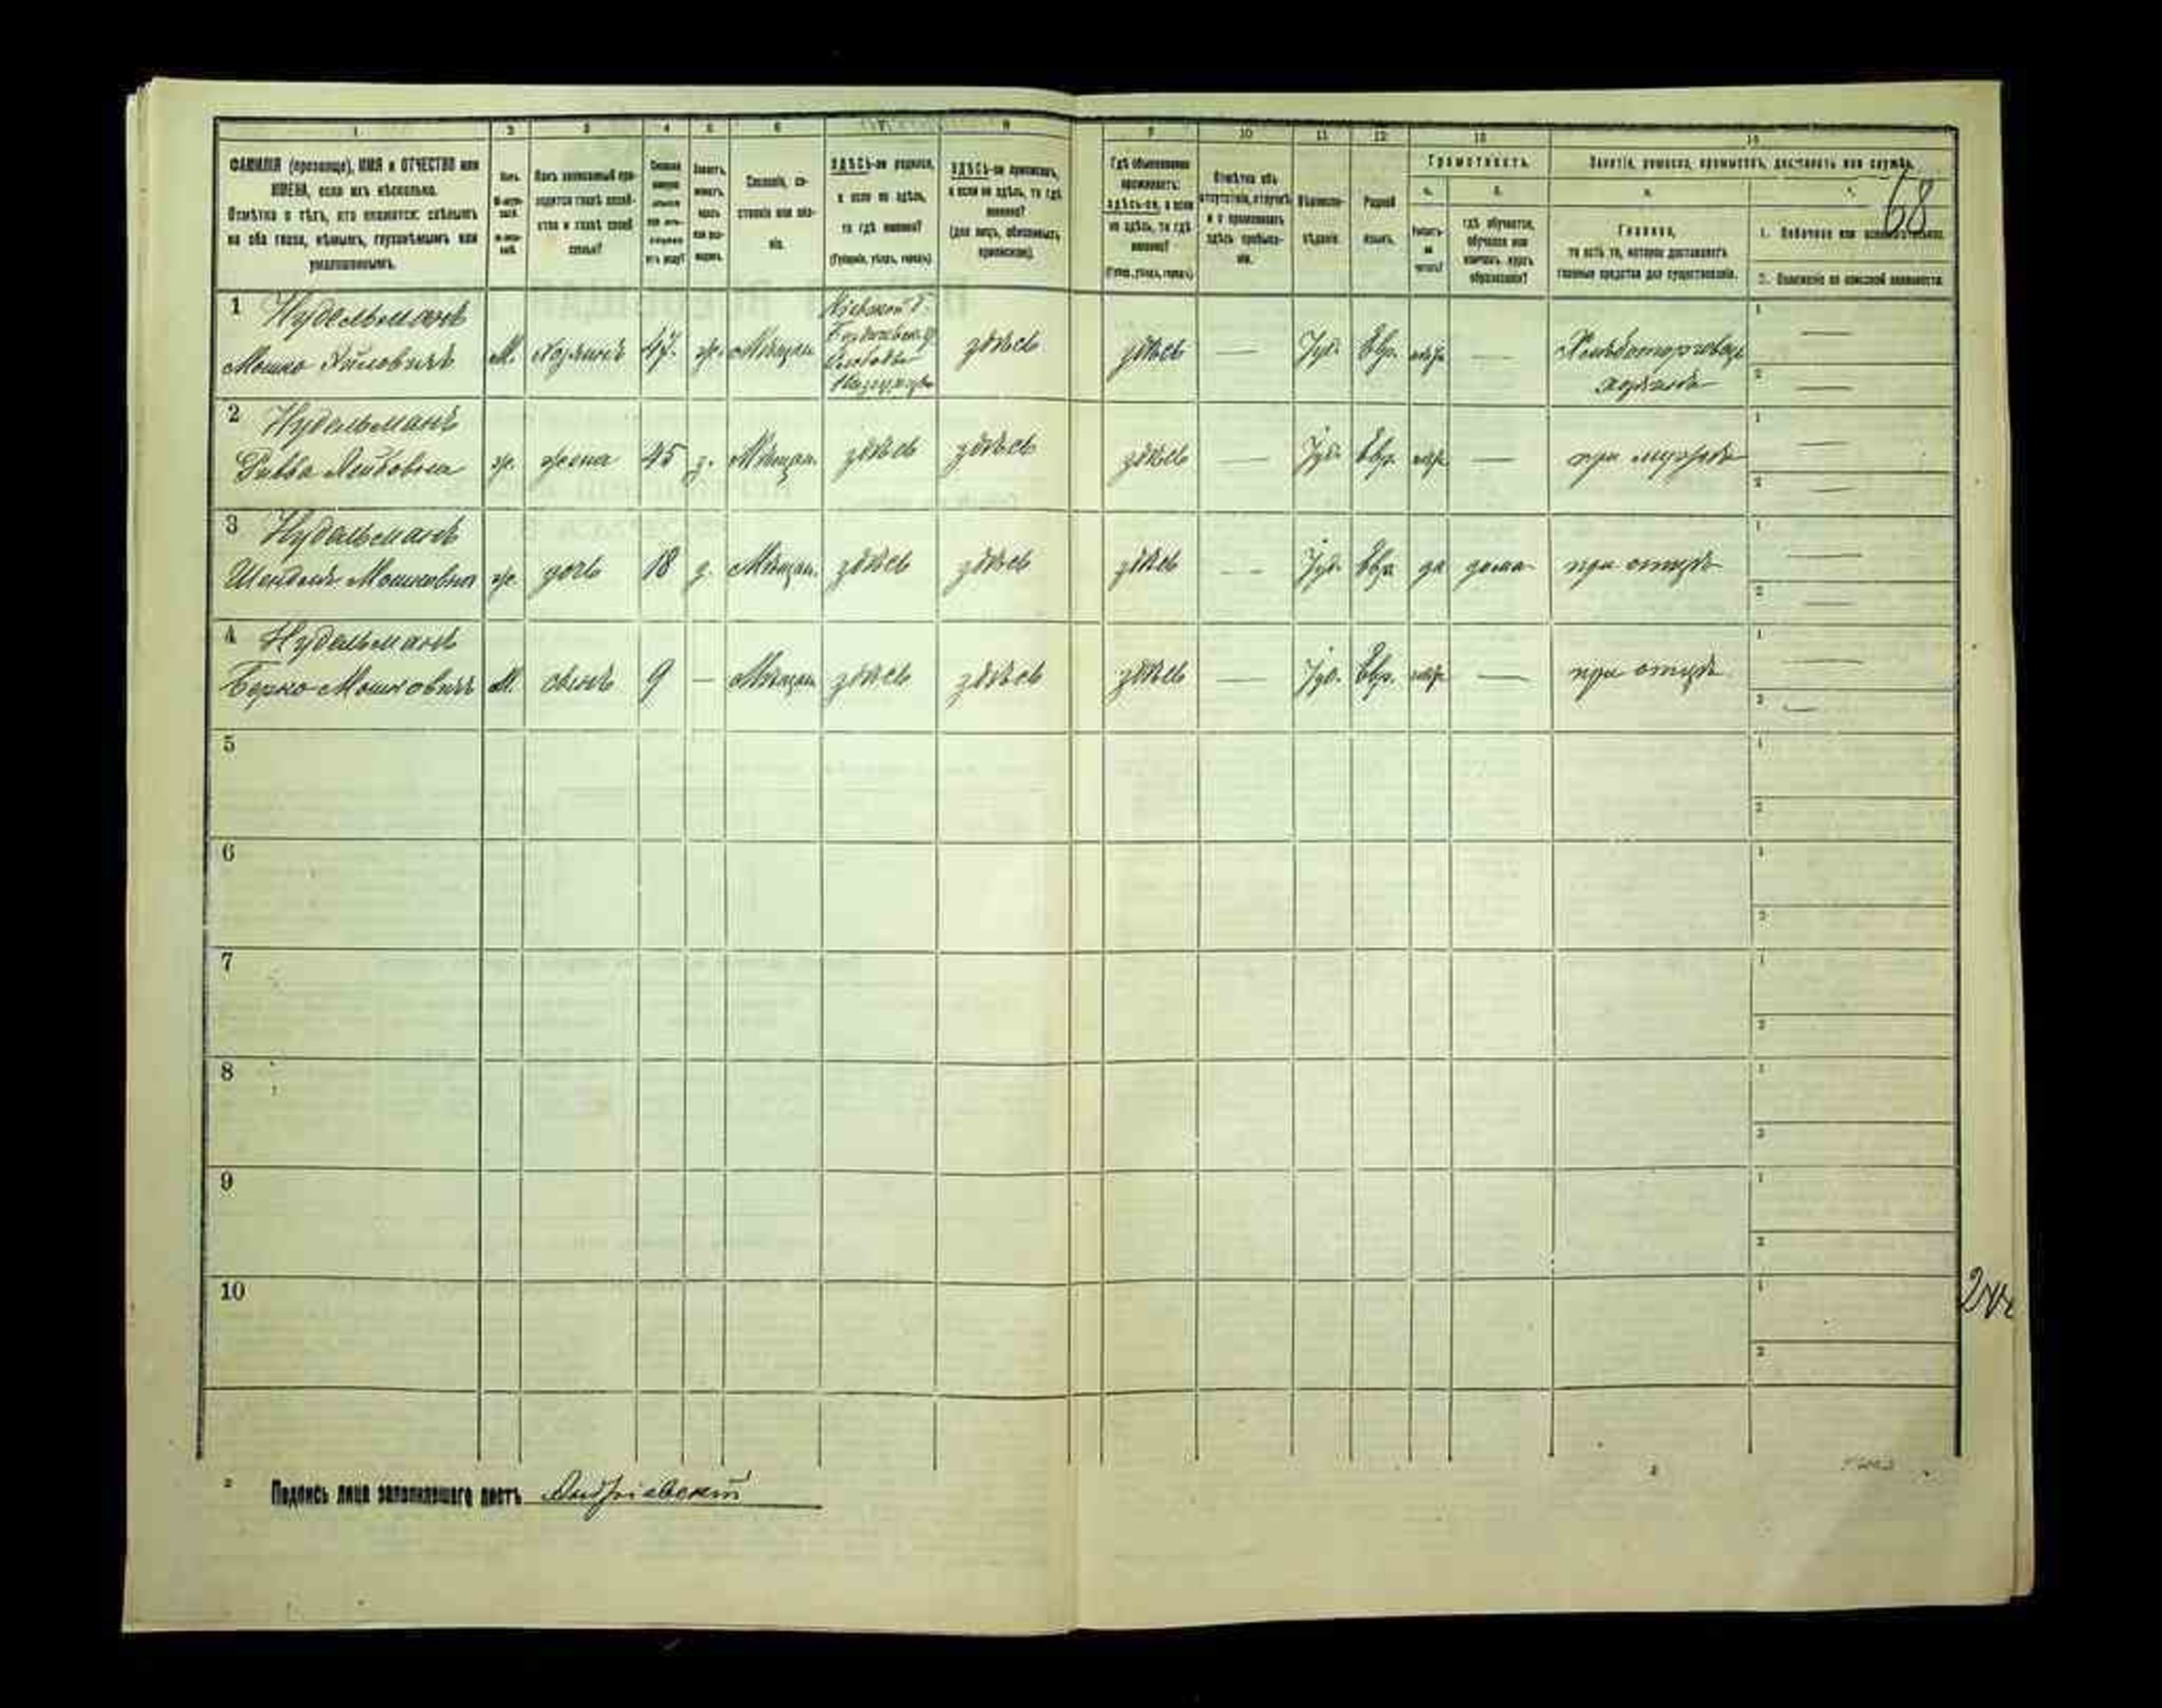 1 2 3 4 5 6 8
ФАМИЛІЯ (прозвище), ИМЯ и ОТЧЕСТВО или
ИМЕНА, если ихъ нѣсколько.
Отмѣтка о тѣхъ, кто окажется: слѣпымъ
на оба глаза, нѣмымъ, глухонѣмымъ или
умалишеннымъ.
Какъ записанный при-
ходится главѣ хозяй-
ства и главѣ своей
семьи?
Сословіе, со-
стояніе или зва-
ніе.
ЗДѢСЬ-ли родился,
а если не здѣсь,
то гдѣ именно?
(Губернія, уѣздъ, городъ)
ЗДѢСЬ-ли приписанъ,
а если не здѣсь, то гдѣ
именно?
(для лицъ, обязанныхъ
припискою).
9 10 11 12 13 14
Гдѣ обыкновенно
проживаетъ:
здѣсь-ли, а если
не здѣсь, то гдѣ
именно?
(Губер., уѣздъ, городъ)
Отмѣтка объ
отсутствіи, отлучкѣ
и о временномъ
здѣсь пребыва-
ніи.
Вѣроиспо-
вѣданіе.
Родной
языкъ.
Грамотность.
а. б.
Умѣетъ-
ли
читать?
гдѣ обучается,
обучался или
кончилъ курсъ
образованія?
Занятіе, ремесло, промыслъ, должность или служба.
Главное,
то есть то, которое доставляетъ
главныя средства для существованія.
1. Побочное или вспомогательное.
2. Положеніе по воинской повинности.
68
1 Нудельманъ
Мошко М. хозяинъ 47 ж. Мѣщан. Кіевской г. здѣсь здѣсь — Іуд. Евр. — Хлѣботорговец 1 —
хозяинъ 2 —
2 Нудельманъ
Ривва Лейбовна ж. жена 45 з. Мѣщан. здѣсь здѣсь здѣсь — Іуд. Евр. — при мужѣ 1 —
2 —
3 Нудельманъ
Мошковна ж. дочь 18 д. Мѣщан. здѣсь здѣсь здѣсь — Іуд. Евр. да дома при отцѣ 1 —
2 —
4 Нудельманъ
Берко Мошковичъ М. сынъ 9 — Мѣщан. здѣсь здѣсь здѣсь — Іуд. Евр. — при отцѣ 1 —
2 —
5 1
2
6 1
2
7 1
2
8 1
2
9 1
2
10 1
2
2
Подпись лица заполнявшаго листъ Андріевскій